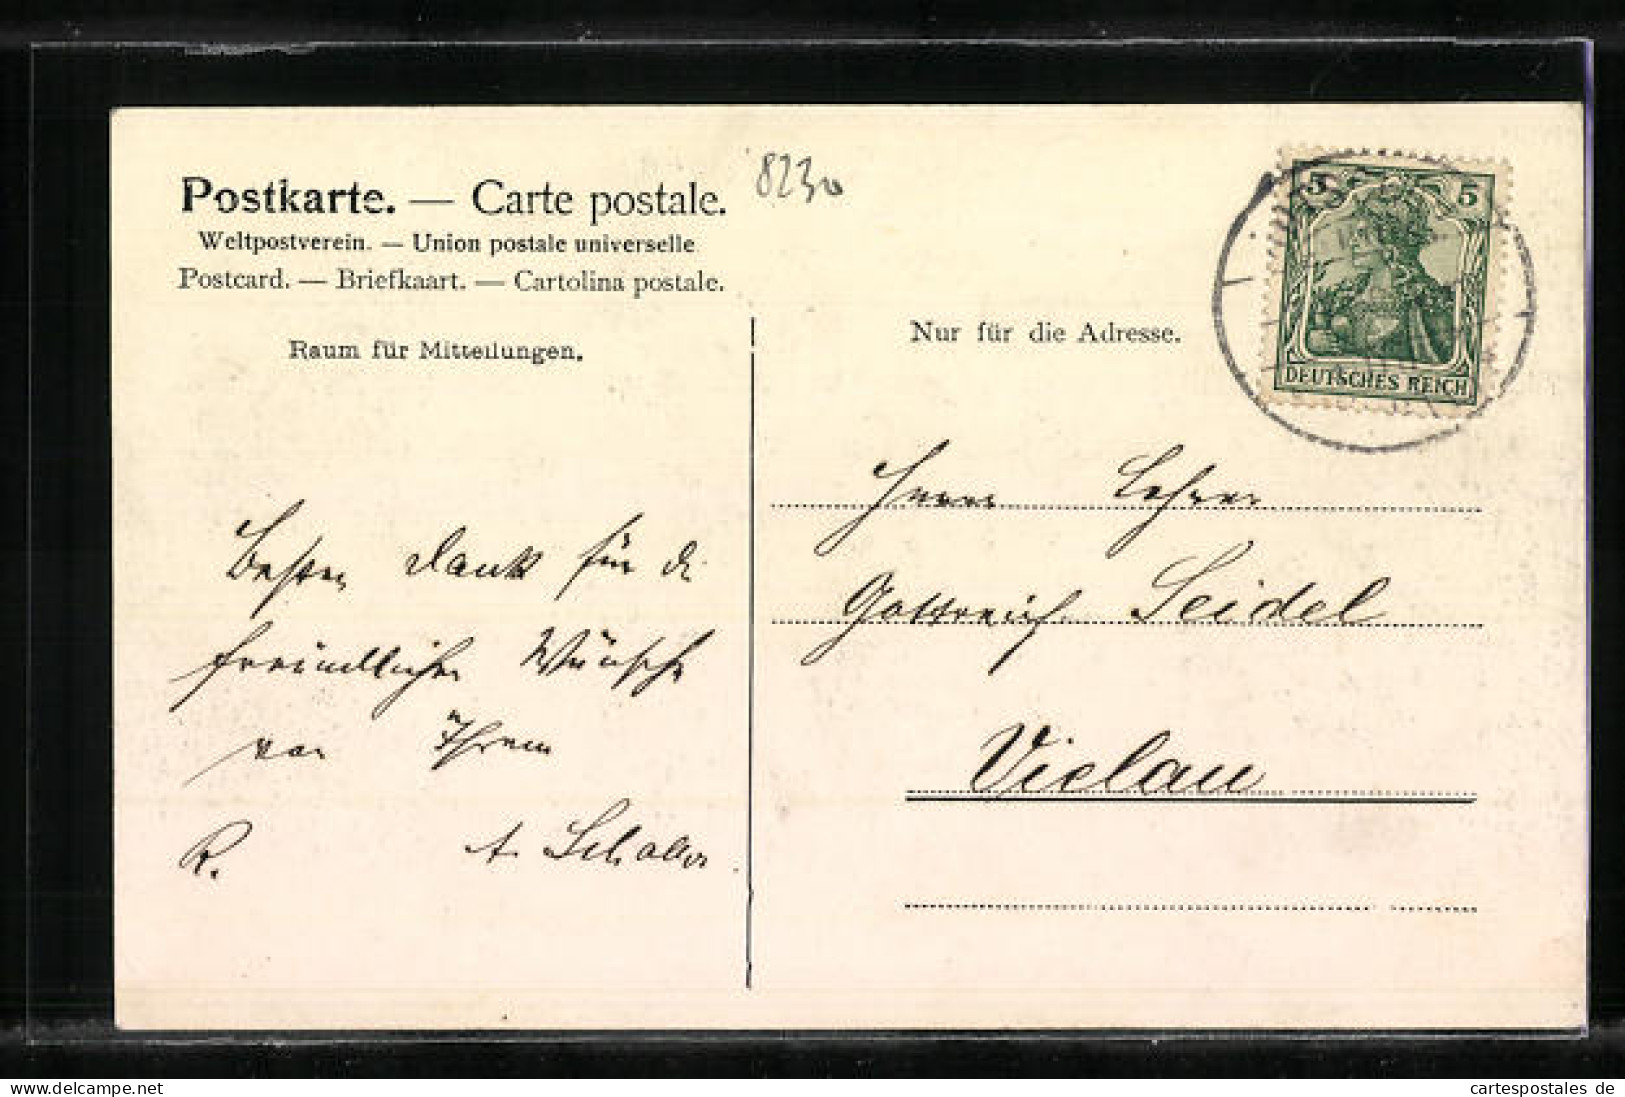 Postkarte. — Carte postale.
8230
Weltpostverein. — Union postale universelle
Postcard. — Briefkaart. — Cartolina postale.
Raum für Mitteilungen.
Nur für die Adresse.
5 5
DEUTSCHES REICH
Herrn Lehrer
Gottreich Seidel
Vielau
Besten Dank für di
freundlichen Wünsche
von Ihrem
R. A. Schaller.
cartespostales de
delcampe.net